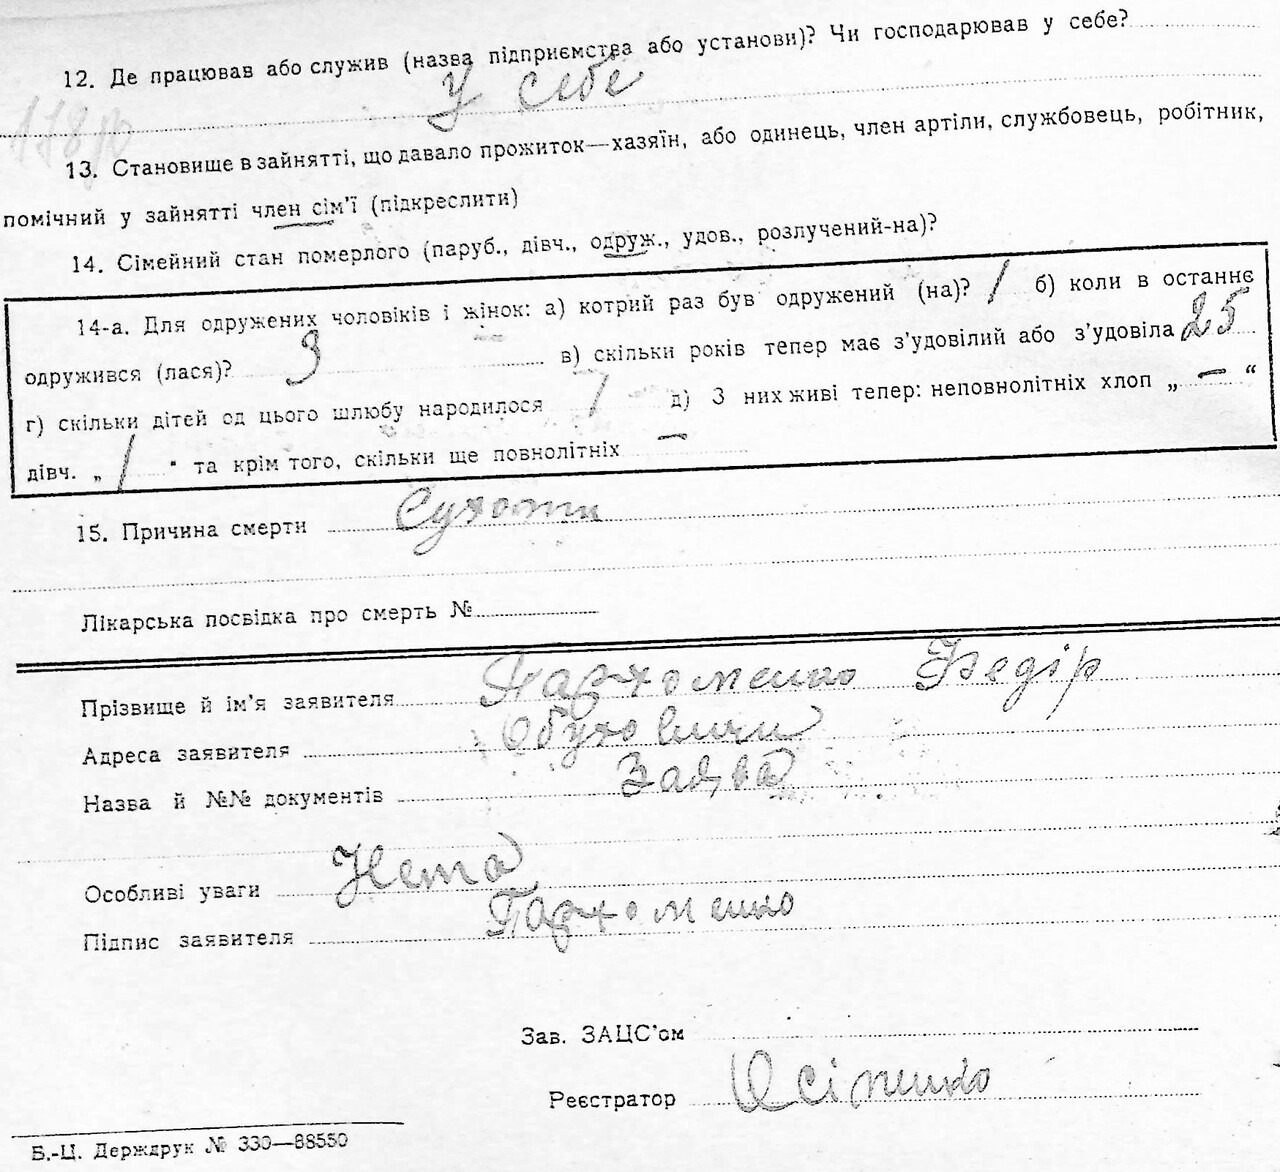 12. Де працював або служив (назва підприємства або установи)? Чи господарював у себе?
У себе
13. Становище в зайнятті, що давало прожиток—хазяїн, або одинець, член артіли, службовець, робітник,
помічний у зайнятті член сім'ї (підкреслити)
14. Сімейний стан померлого (паруб., дівч., одруж., удов., розлучений-на)?
14-а. Для одружених чоловіків і жінок: а) котрий раз був одружений (на)? 1 б) коли в останнє
одружився (лася)? 3 в) скільки років тепер має з'удовілий або з'удовіла 25
г) скільки дітей од цього шлюбу народилося 1 д) З них живі тепер: неповнолітніх хлоп „ — “
дівч. „ 1 " та крім того, скільки ще повнолітніх —
15. Причина смерти Сухоти
Лікарська посвідка про смерть №
Прізвище й ім'я заявителя Пархоменко Федір
Адреса заявителя Обуховичи
Назва й №№ документів Заява
Особливі уваги Нема
Підпис заявителя Пархоменко
Зав. ЗАЦС'ом
Реєстратор Осіпенко
Б.-Ц. Держдрук № 330—88550